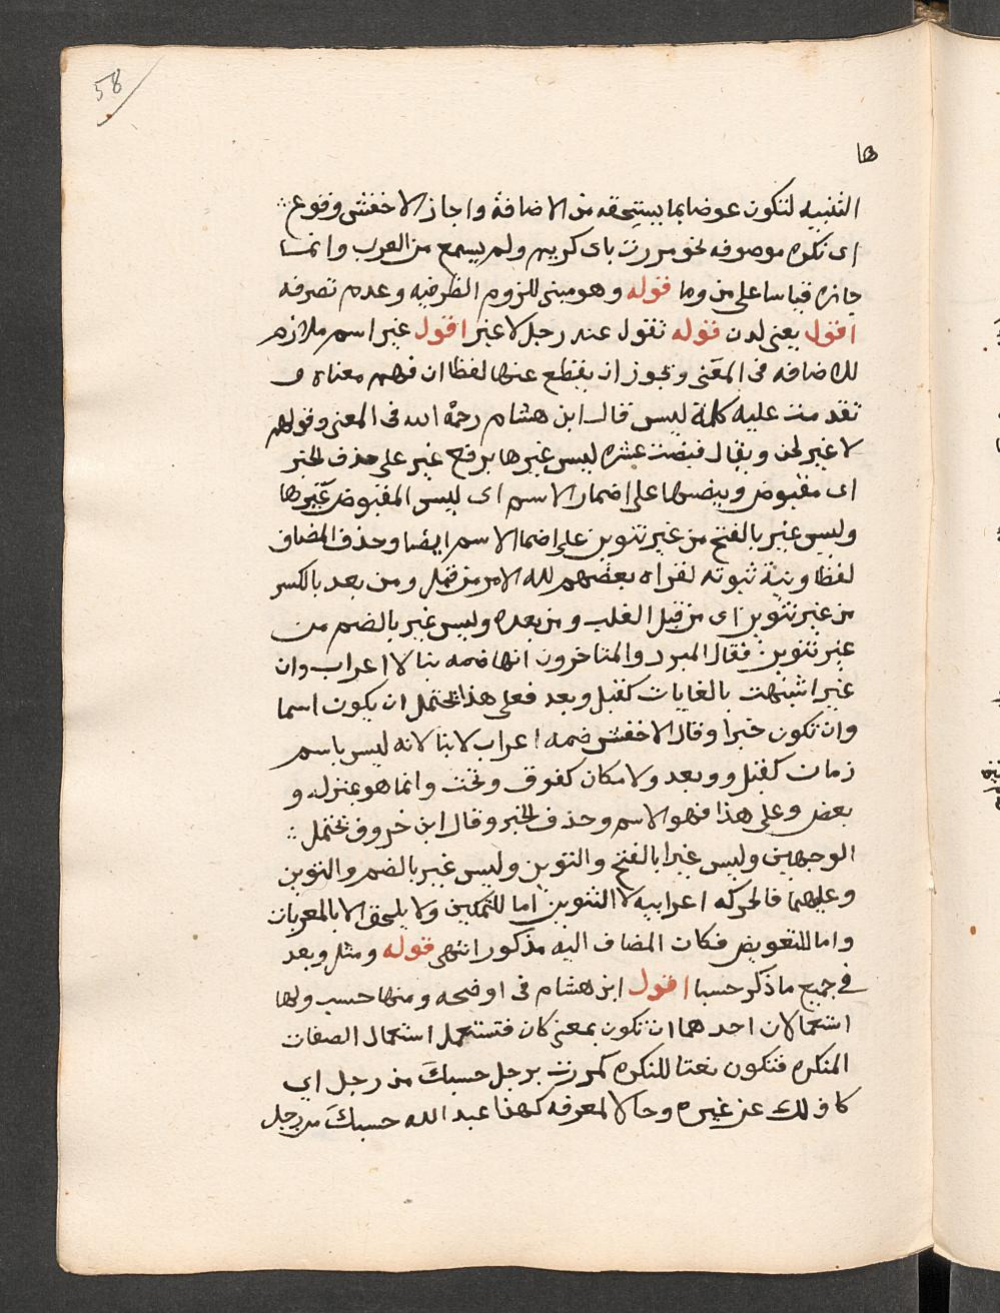 58
ها
التنبيه لتكون عوضا بما يستحقه من الاضافة واجاز الاخفش وقوع
اى نكره موصوفه نحو مررت باى كريم ولم يسمع من العرب وانما
جاىزه قياسا على من وما قوله وهو مبنى للزوم الظرفيه وعدم تصرفه
اقول يعنى لدن قوله تقول عنه رجل لاغير اقول غير اسم ملازم
للاضافه فى المعنى وتجوز ان يقطع عنها لفظا ان فهم معناه و
تقدمت عليه كلمة ليس قال ابن هشام رحمة الله فى المعنى وقولهم
لاغير لحن ويقال قبضت عشره ليس غيرها برفع غير على حذف الخبر
اى مقبوض وبنصبها على اضمار الاسم اى ليس المقبوض غيرها
وليس غير بالفتح من غير تنوين على اضما الاسم ايضا وحذف المضاف
لفظا ونية ثبوته لقراه بعضهم لله الامر من قبل ومن بعد بالكسر
من غير تنوين اى من قبل الغلب ومن بعده وليس غير بالضم من
غير تنوين فقال المبرد والمتاخرون انها ضمه بنا لا اعراب وان
غير اشبهت بالغايات كقبل وبعد فعلى هذا يحتمل ان يكون اسما
وان تكون خبرا وقال الاخفش ضمه اعراب لا بنا لانه ليس باسم
زمان كقبل و وبعد ولا مكان كفوق وتحت وانما هو بمنزله و
بعض وعلى هذا فهو الاسم وحذف الخبر وقال ابن خروف تحتمل
الوجهين وليس غيرا بالفتح والتوين وليس غير بالضم والتوين
وعليهما فالحركه اعرابيه لا التنوين اما للتمكين ولا يلحق الا بالمعربات
واما للتعويض فكان المضاف اليه مذكور انتهى قوله ومثل وبعد
فى جميع ما ذكر حسبا اقول ابن هشام فى اوضحه ومنها حسب ولها
استعمالان احدهما ان تكون بمعنى كان فتستعمل استعمال الصفات
المنكره فتكون نعتا للنكره كمررت برجل حسبك من رجل اى
كاف لك عن غيره وحالا لمعرفه كهذا عبد الله حسبك من رجل